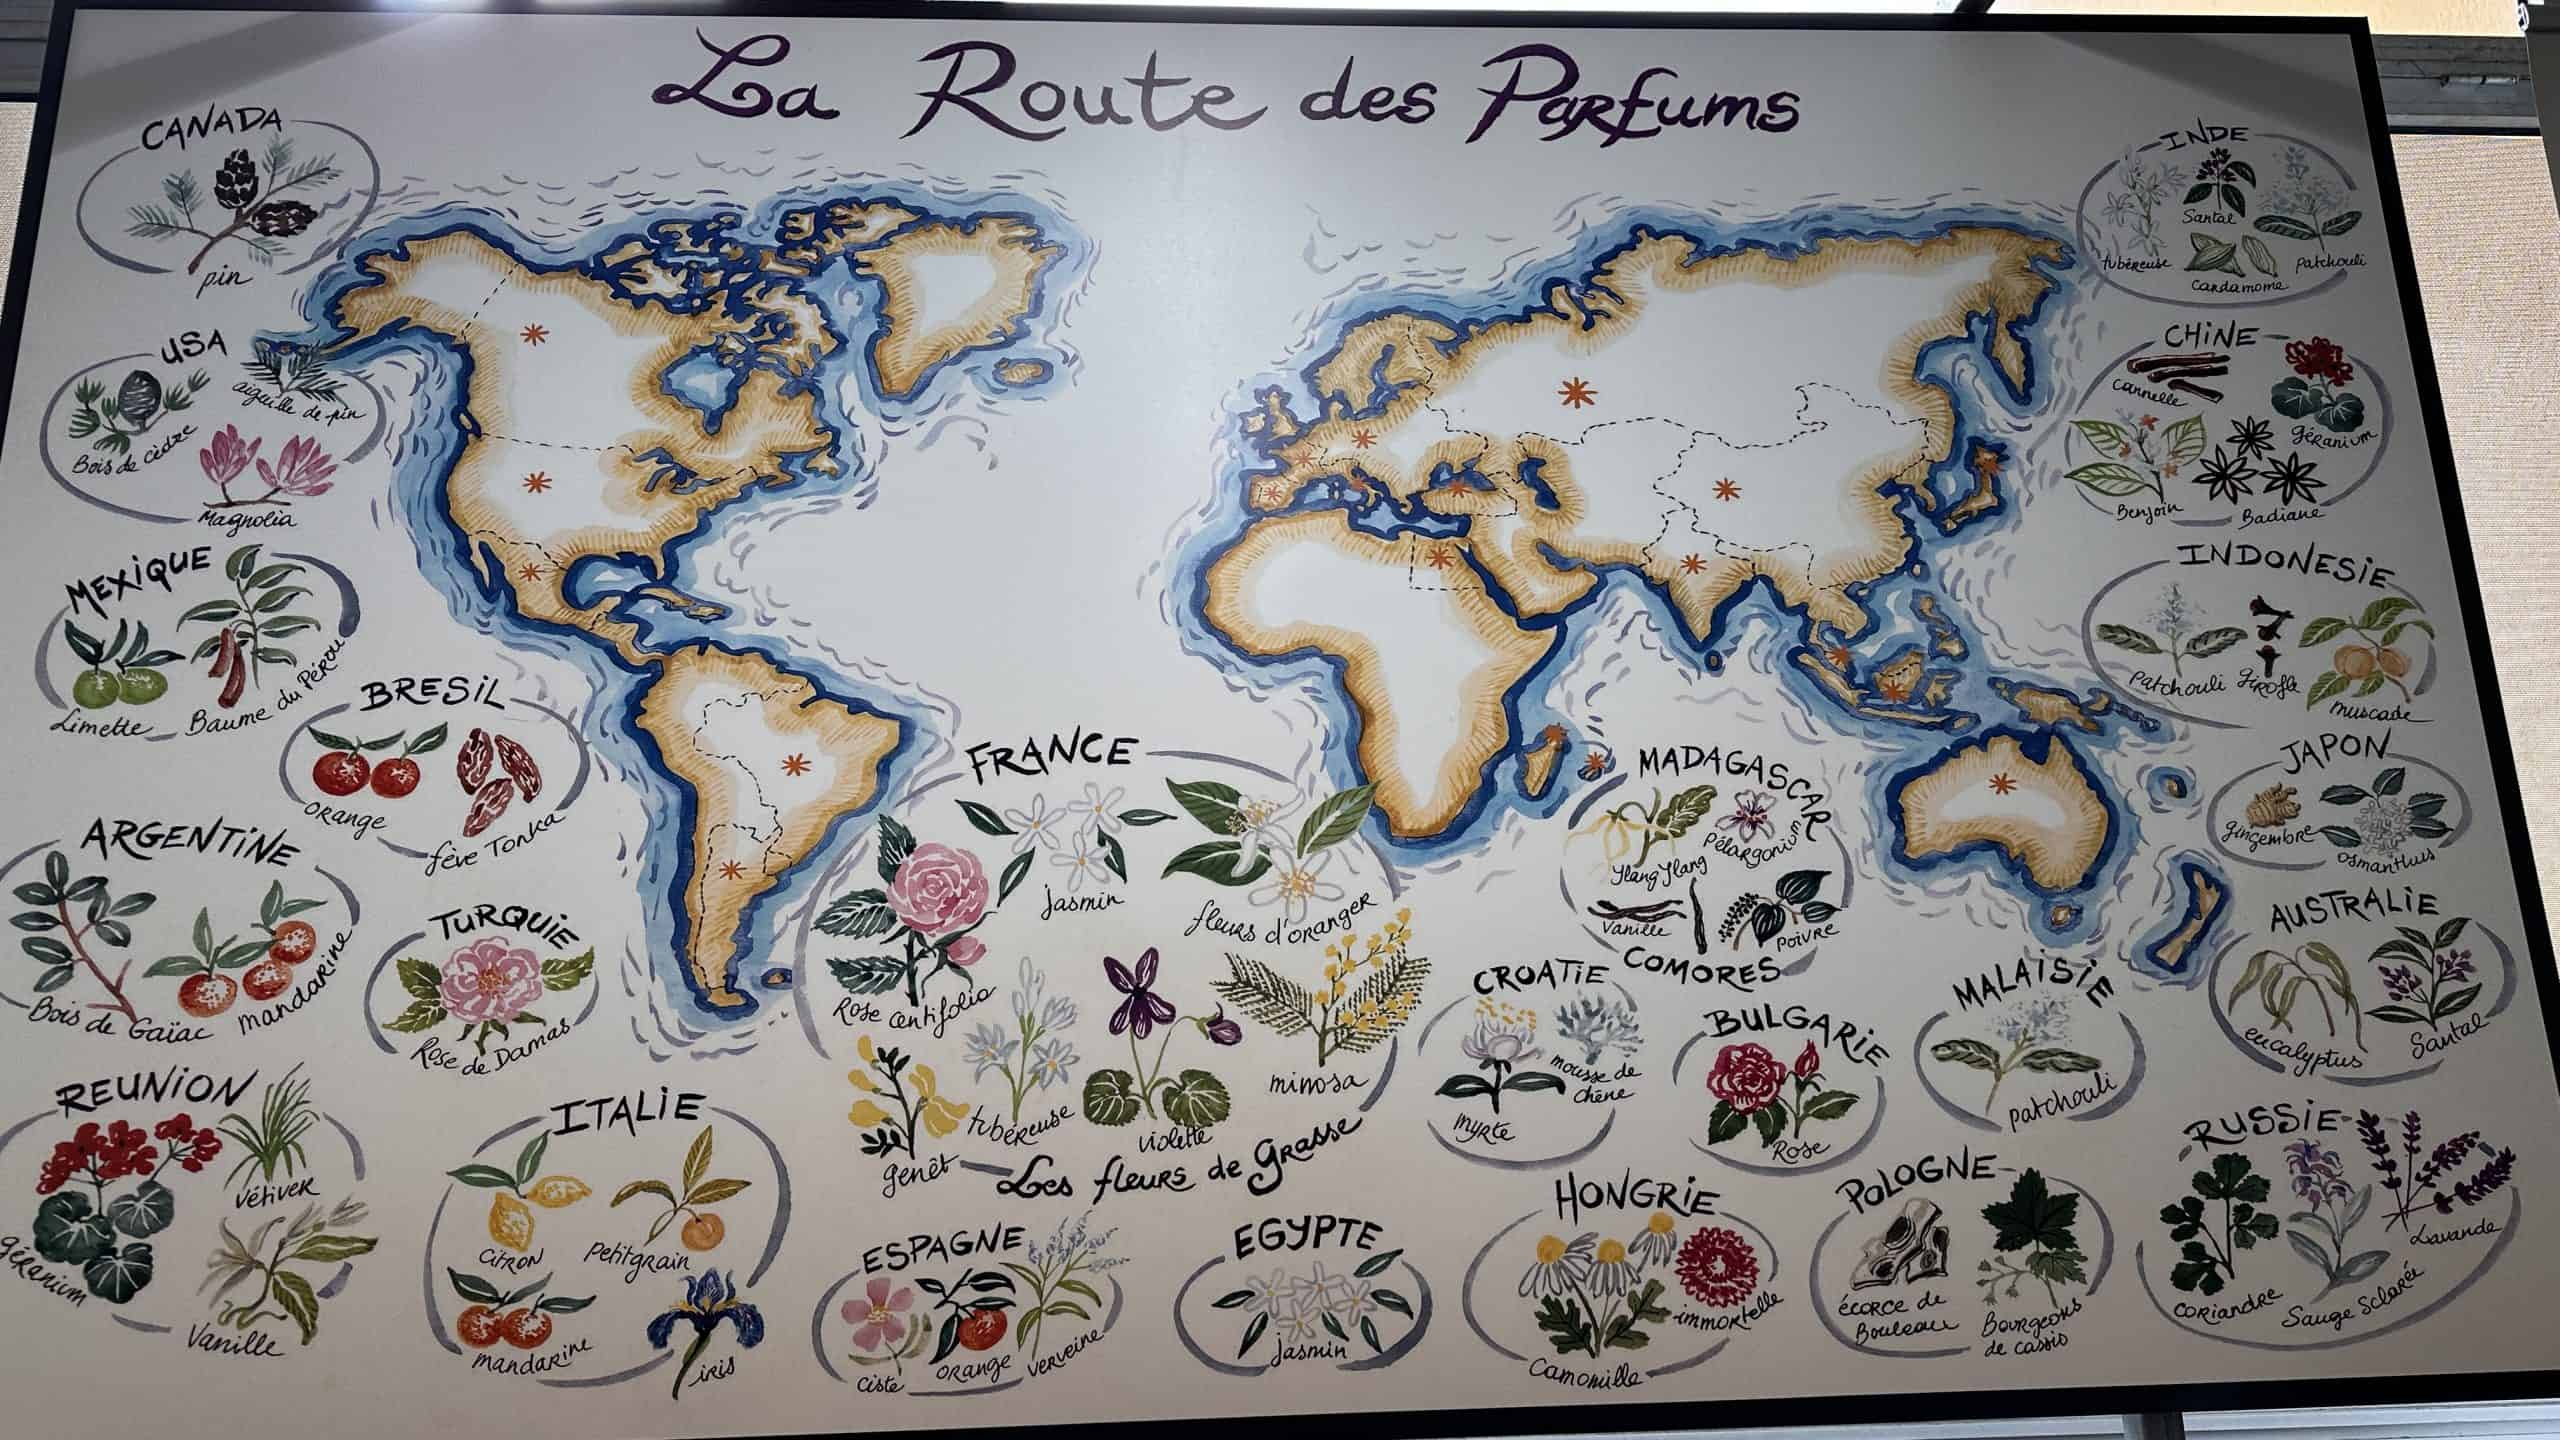 La Route des Parfums
CANADA
pin
USA
Bois de cèdre
aiguille de pin
Magnolia
MEXIQUE
Limette
Baume du Pérou
BRESIL
orange
fève Tonka
ARGENTINE
Bois de Gaïac
mandarine
TURQUIE
Rose de Damas
REUNION
géranium
vétiver
Vanille
ITALIE
citron
Petitgrain
mandarine
iris
FRANCE
Rose centifolia
jasmin
fleurs d'oranger
genêt
tubéreuse
violette
mimosa
Les fleurs de Grasse
ESPAGNE
ciste
orange
verveine
EGYPTE
jasmin
MADAGASCAR
Ylang Ylang
Pélargonium
Vanille
Poivre
COMORES
CROATIE
myrte
mousse de
chêne
BULGARIE
Rose
MALAISIE
patchouli
HONGRIE
Camomille
immortelle
POLOGNE
écorce de
Bouleau
Bourgeons
de cassis
INDE
tubéreuse
Santal
Cardamome
patchouli
CHINE
cannelle
géranium
Benjoin
Badiane
INDONESIE
patchouli
girofle
muscade
JAPON
gingembre
osmanthus
AUSTRALIE
eucalyptus
Santal
RUSSIE
coriandre
Sauge Sclarée
Lavande